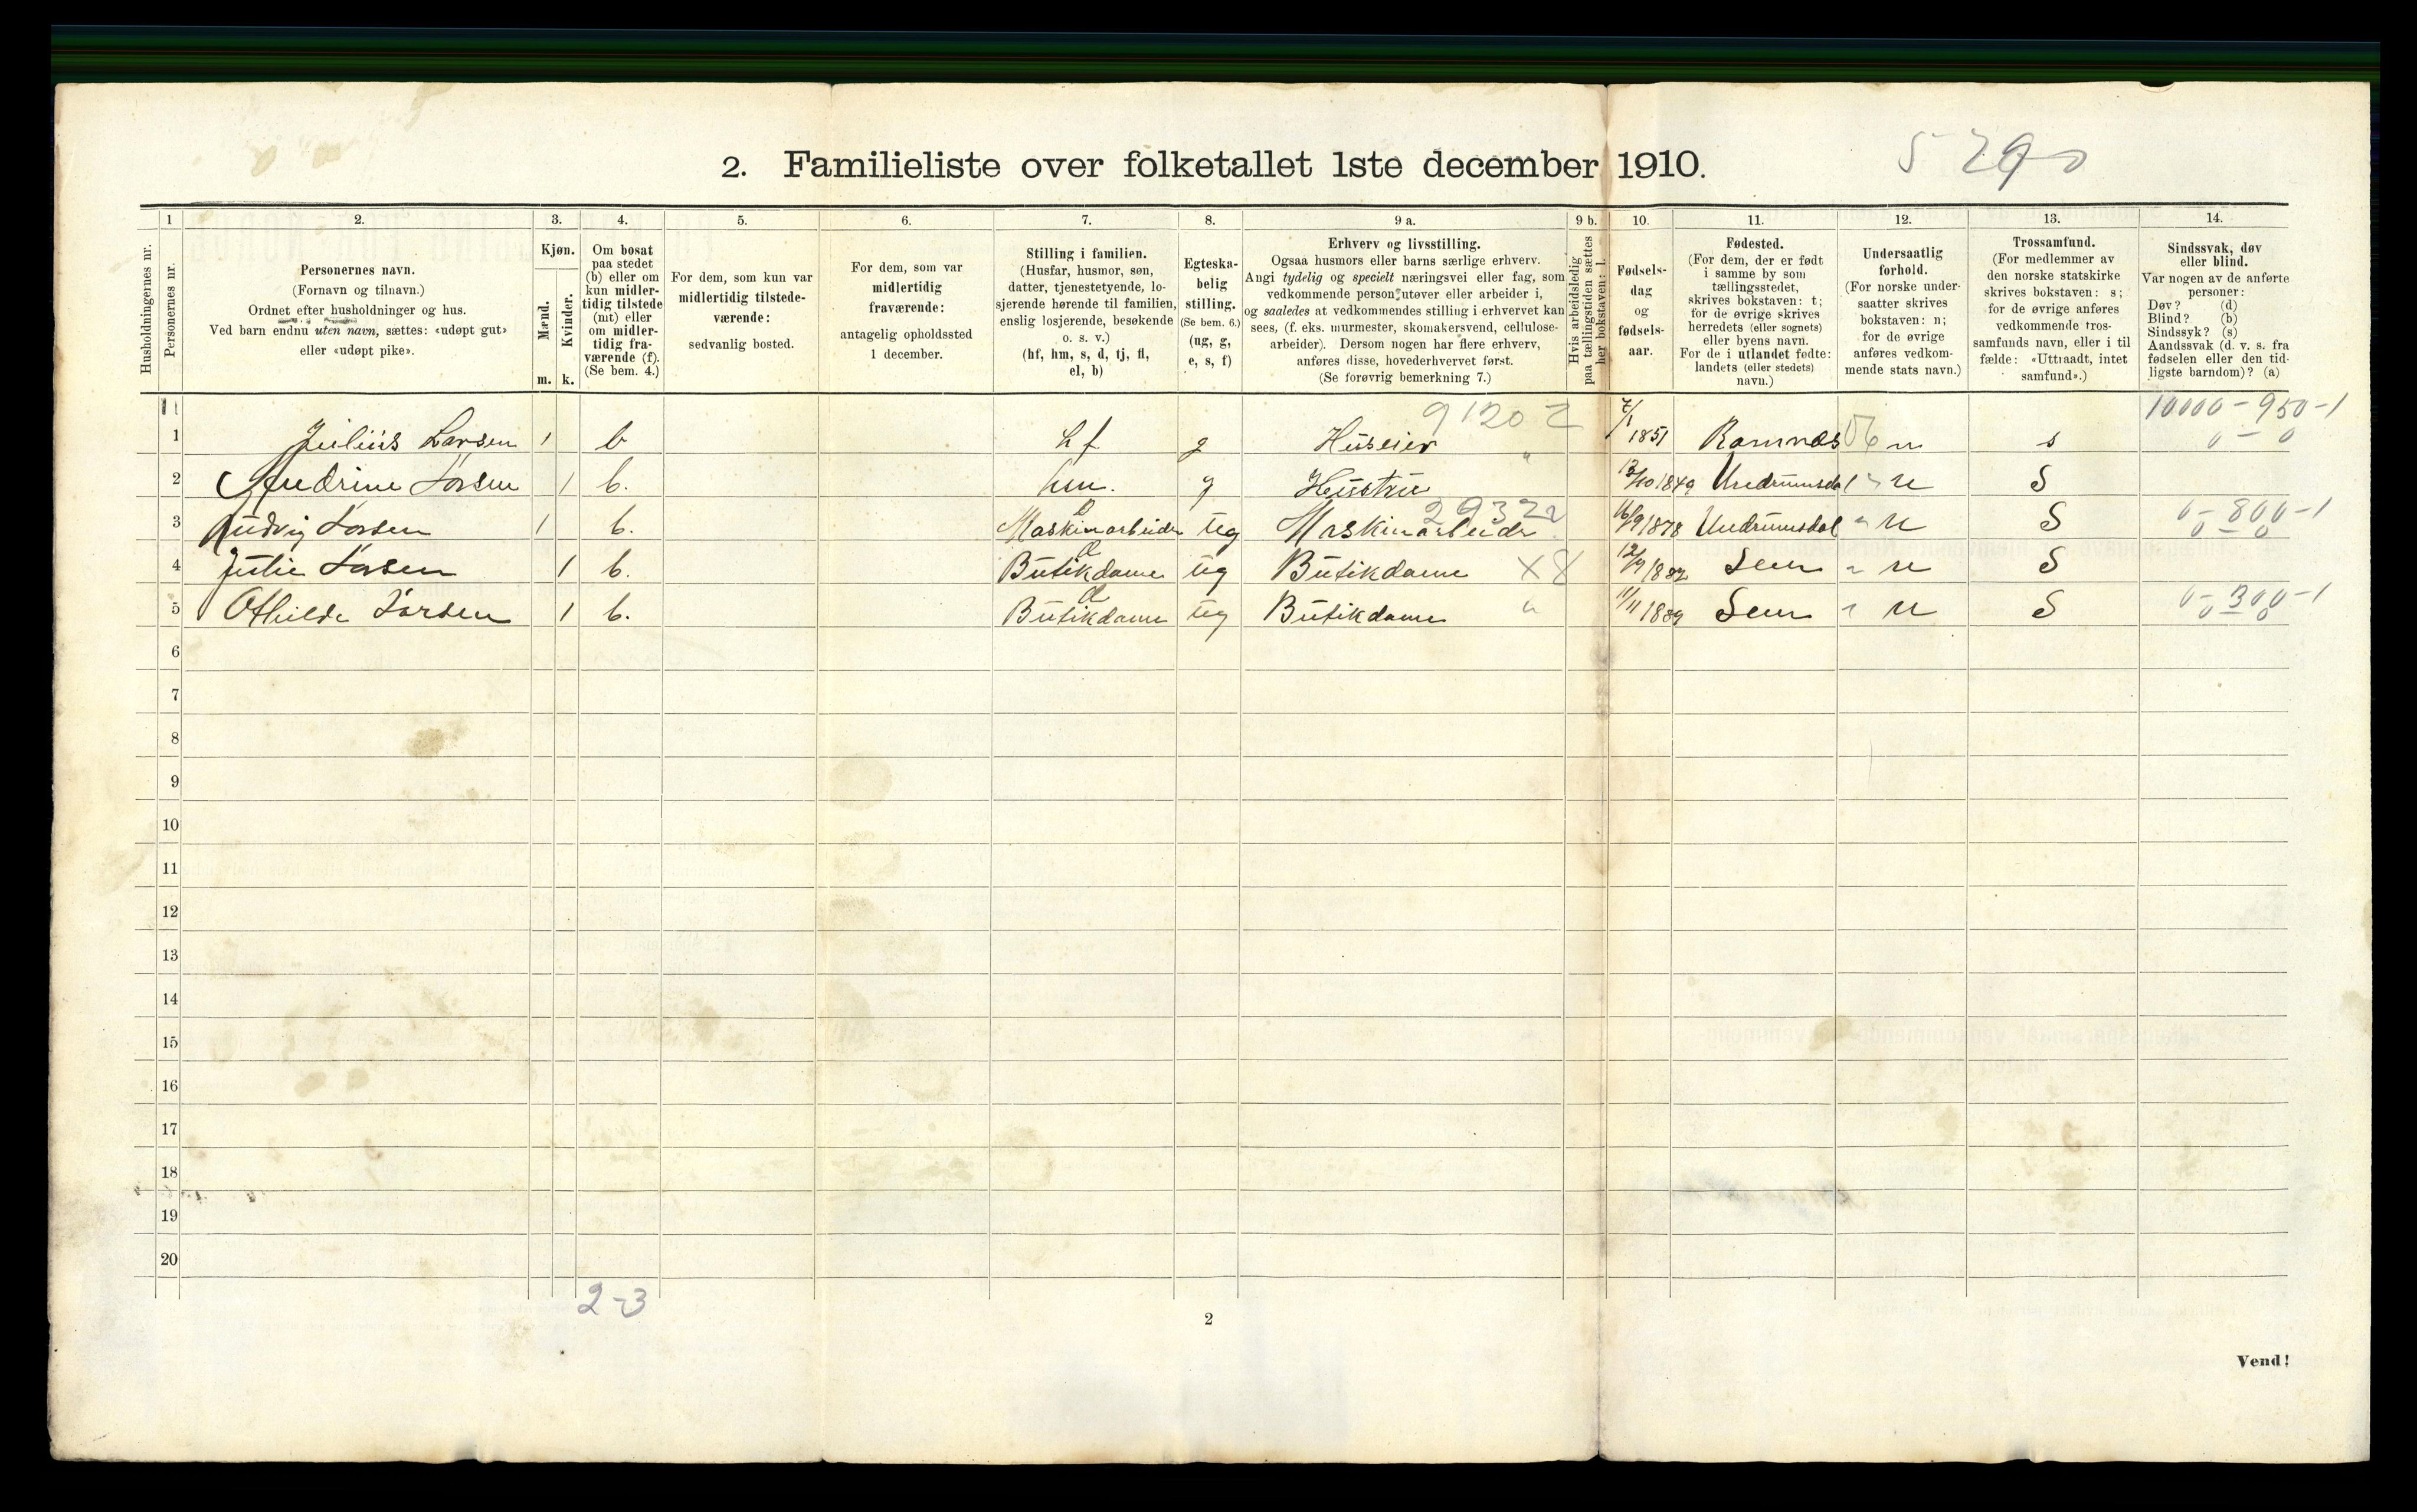 5290
2. Familieliste over folketallet 1ste december 1910.
1 2. 3. 4. 5. 6. 7. 8. 9 a. 9 b. 10. 11. 12. 13. 14.
Husholdningernes nr.
Personernes nr.
Personernes navn.
(Fornavn og tilnavn.)
Ordnet efter husholdninger og hus.
Ved barn endnu uten navn, sættes: «udøpt gut»
eller «udøpt pike».
Kjøn.
Mænd.
Kvinder.
m. k.
Om bosat
paa stedet
(b) eller om
kun midler-
tidig tilstede
(mt) eller
om midler-
tidig fra-
værende (f).
(Se bem. 4.)
For dem, som kun var
midlertidig tilstede-
værende:
sedvanlig bosted.
For dem, som var
midlertidig
fraværende:
antagelig opholdssted
1 december.
Stilling i familien.
(Husfar, husmor, søn,
datter, tjenestetyende, lo-
sjerende hørende til familien,
enslig losjerende, besøkende
o. s. v.)
(hf, hm, s, d, tj, fl,
el, b)
Egteska-
belig
stilling.
(Se bem. 6.)
(ug, g,
e, s, f)
Erhverv og livsstilling.
Ogsaa husmors eller barns særlige erhverv.
Angi tydelig og specielt næringsvei eller fag, som
vedkommende person utøver eller arbeider i,
og saaledes at vedkommendes stilling i erhvervet kan
sees, (f. eks. murmester, skomakersvend, cellulose-
arbeider). Dersom nogen har flere erhverv,
anføres disse, hovederhvervet først.
(Se forøvrig bemerkning 7.)
Hvis arbeidsledig
paa tællingstiden sættes
her bokstaven: l.
Fødsels-
dag
og
fødsels-
aar.
Fødested.
(For dem, der er født
i samme by som
tællingsstedet,
skrives bokstaven: t;
for de øvrige skrives
herredets (eller sognets)
eller byens navn.
For de i utlandet fødte:
landets (eller stedets)
navn.)
Undersaatlig
forhold.
(For norske under-
saatter skrives
bokstaven: n;
for de øvrige
anføres vedkom-
mende stats navn.)
Trossamfund.
(For medlemmer av
den norske statskirke
skrives bokstaven: s;
for de øvrige anføres
vedkommende tros-
samfunds navn, eller i til
fælde: «Uttraadt, intet
samfund».)
Sindssvak, døv
eller blind.
Var nogen av de anførte
personer:
Døv? (d)
Blind? (b)
Sindssyk? (s)
Aandssvak (d. v. s. fra
fødselen eller den tid-
ligste barndom)? (a)
9120 2 10000-950-1
1 Julius Larsen 1 b hf g Huseier 7/1 1851 Ramnæs 06 n s 0-0
2 Andrine Larsen 1 b. hm. g Hüstrü 13/10 1849 Undrumsdal n S
29322
3 Ludvig Larsen 1 b. Maskinarbeider ug Maskinarbeider 16/9 1878 Undrumsdal n S 0-800-1
0-0
4 Julie Larsen 1 b. d Butikdame ug Butikdame X8 12/9 1882 Sem n S
5 Othilde Larsen 1 b. d Butikdame ug Butikdame " 11/11 1889 Sem n S 0-300-1
0-0
6
7
8
9
10
11
12
13
14
15
16
17
18
19
20
2-3
2
Vend!